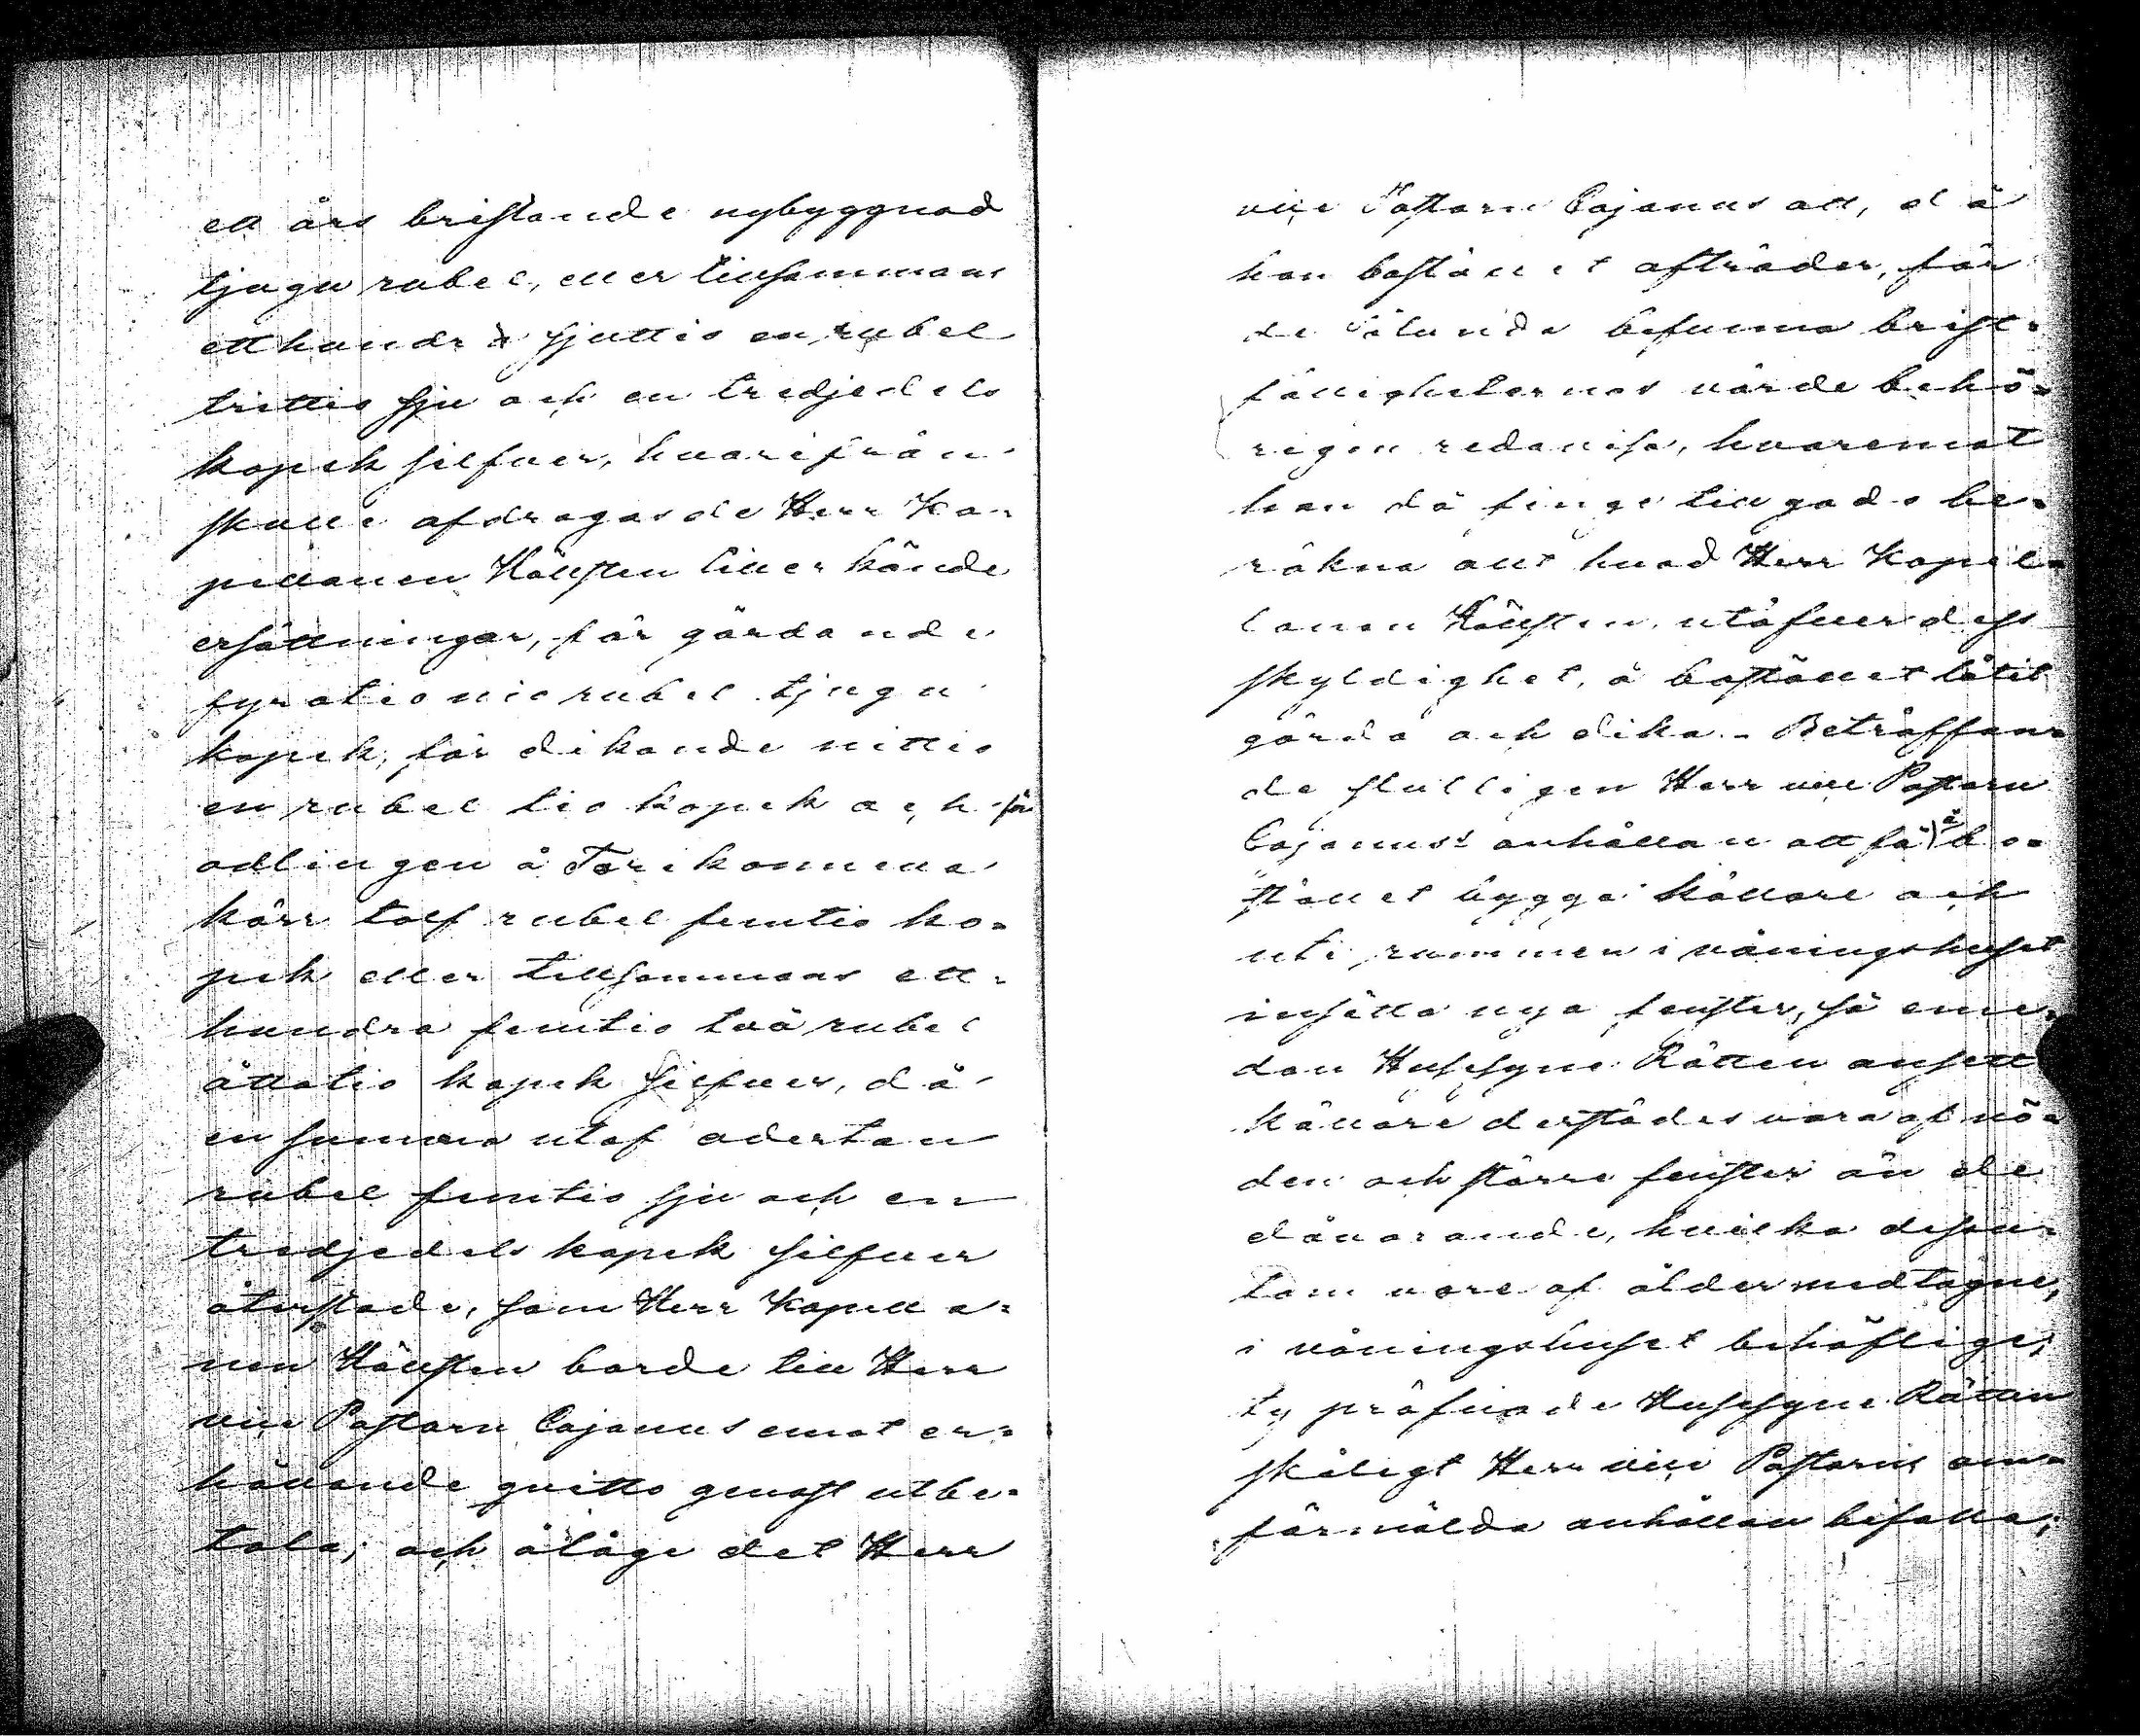 ett års bristande nybyggnad
tjugu rubel, eller tillsammans
etthundra sjuttio en rubel
trettio sju och en tredjedels
kopek silfver, hvarifrån
skulle afdragas de Herr Ka-
pellanen Hällsten tillerkände
ersättningar, för gärdande
fyratio nio rubel tjugu
kopek, för dikande nittio
en rubel tio kopek och för
odlingen å Torikonneva
kärr tolf rubel femtio ko-
pek eller tillsammans ett-
hundra femtio två rubel
åttatio kopek silfver, då
en summa utaf aderton
rubel femtio sju och en
tredjedels kopek silfver
återstode, som Herr Kapella-
nen Hällsten borde till Herr
vice Pastorn Cajanus emot er-
hållande qvitto genast utbe-
tala; och ålåge det Herr
vice Pastorn Cajanus att, då
han bostället afträder, för
de sålunda befunna brist-
fälligheternas värde behö-
rigen redovisa, hvaremot
han då finge till godo be-
räkna allt hvad Herr Kapel-
lanen Hällsten, utöfver dess
skyldighet, å bostället låtit
gärda och dika. - Beträffan-
de slutligen Herr vice Pastorn
Cajanus's anhållan att få å bo-
stället bygga källare och
uti rummen i våningshuset
insätta nya fenster, så eme-
dan Husesyne Rätten ansett
källare derstädes vara af nö-
den och större fenster än de
dåvarande, hvilka dessu-
tom vore af ålder medtagne,
i våningshuset behöflige;
ty pröfvade Husesyne Rätten
skäligt Herr vice Pastorns om-
förmälda anhållan bifalla;